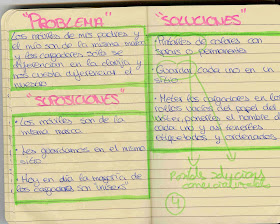 "PROBLEMA"
Los móviles de mis padres y
el mío son de la misma marca
y los cargadores solo se
diferencian en la clavija y
nos cuesta diferenciar el
nuestro
"SUPOSICIONES"
• Los móviles son de la
misma marca
• Les guardamos en el mismo
sitio
• Hoy en día la mayoría de
los cargadores son unisex
"SOLUCIONES"
• Pintarles de colores con
spray o permanente
• Guardar cada uno en un
sitio
• Meter los cargadores en los
rollos vacíos del papel del
váter, ponerles el nombre de
cada uno y así tenerles
etiquetados y ordenados
Posibles soluciones